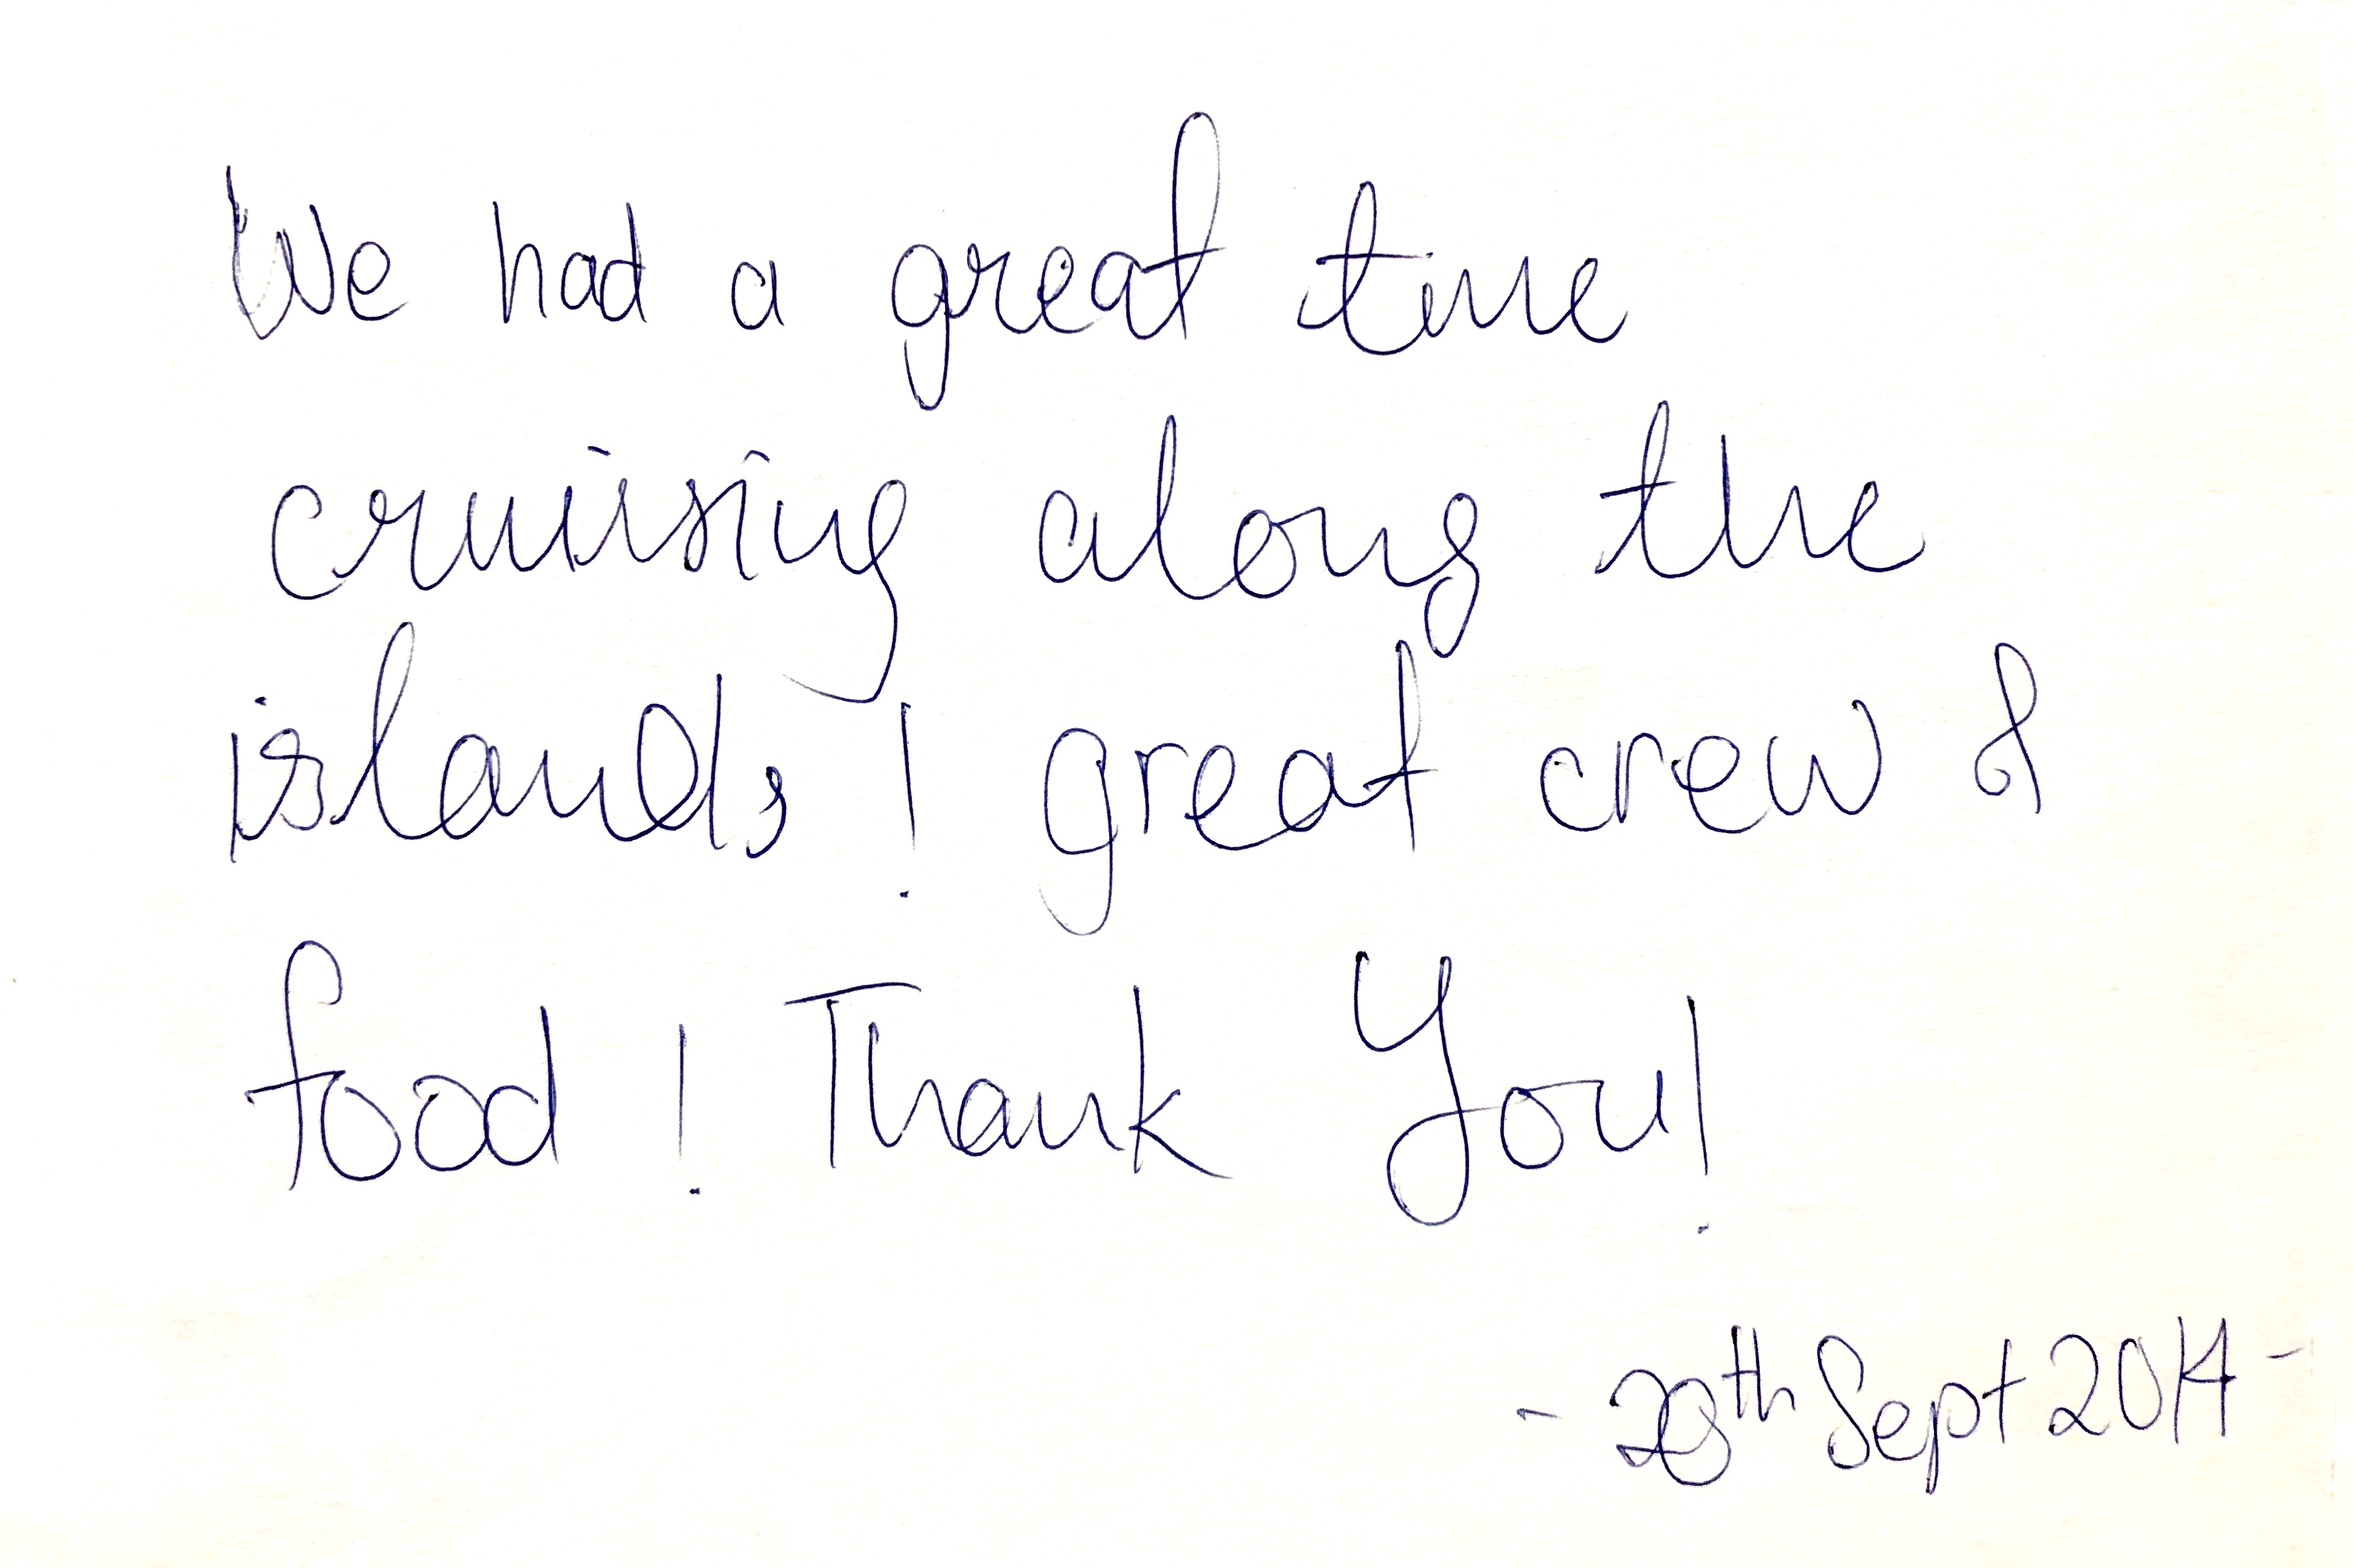 We had a great time
cruising along the
islands! great crew &
food! Thank You!
- 29th Sept 2014 -